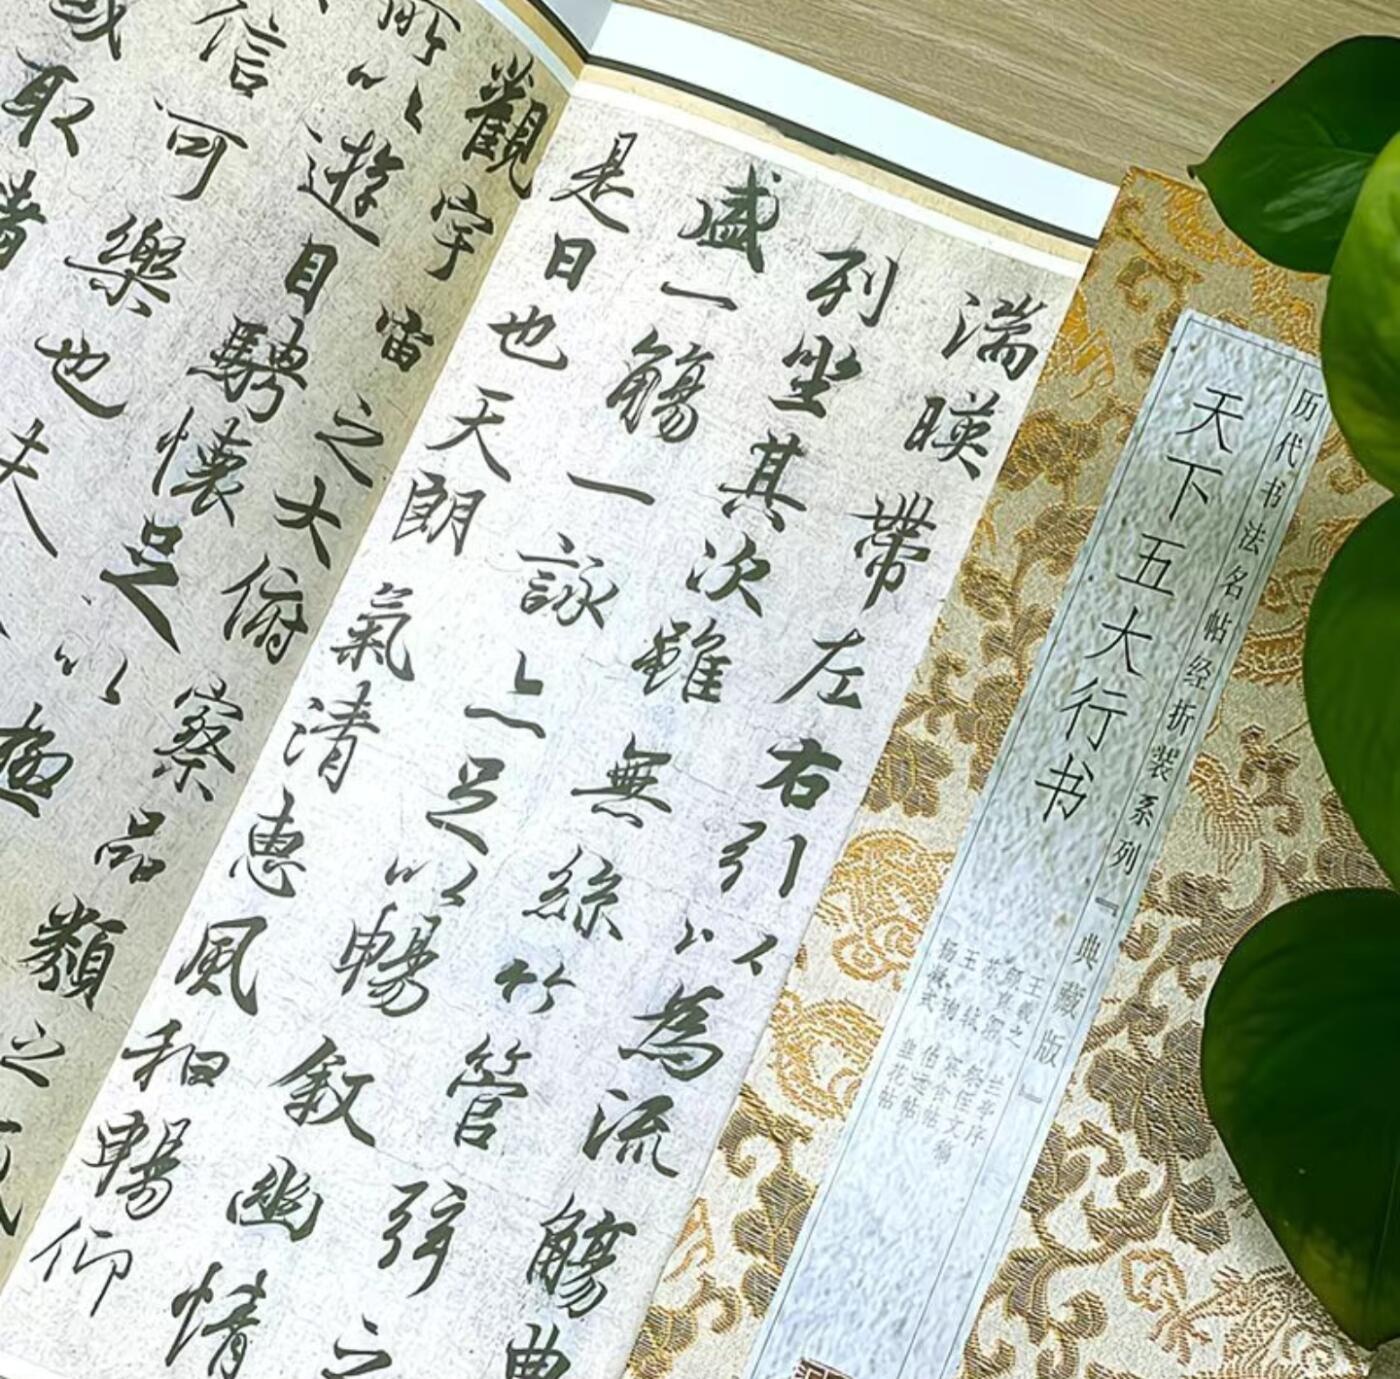 历代书法名帖经折装系列『典藏版』
天下五大行书
王羲之 兰亭序
颜真卿 祭侄文稿
苏轼 寒食帖
王珣 伯远帖
杨凝式 韭花帖
湍暎帶左右引以為流觴曲
列坐其次雖無絲竹管弦之
盛一觴一詠亦足以暢敘幽情
是日也天朗氣清惠風和暢仰
觀宇宙之大俯察品類之
所以遊目騁懷足以極
信可樂也夫
或取諸